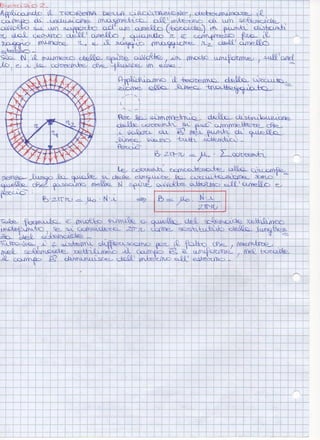 Esercizio 2
Applicando il teorema della circuitazione, determinare il
campo di induzione magnetica all'interno di un solenoide
avvolto su un supporto ad un anello (toroide) in punti distanti
r dal centro dell'anello, quando r è compreso fra il
raggio minore r₁ e il raggio maggiore r₂ dell'anello
stesso.
Sia N il numero delle spire avvolte, in modo uniforme, sull'anel
lo, e i la corrente che fluisce in esse.
Applichiamo il teorema della circuita
zione alla linea tratteggiata
r
r₂
r₁
Per la simmetria della distribuzione
delle correnti si può ammettere che
i valori di B nei punti di quella
linea siano tutti identici.
Perciò
B·2πr = μ₀ · Σ correnti
Le correnti concatenate alla circonfe
renza lungo la quale si deve eseguire la circuitazione sono
quelle che passano nelle N spire avvolte attorno all'anello e
perciò
B·2πr = μ₀ N·i ⇒ B = μ₀ N·i / 2πr
Tale formula è molto simile a quella del solenoide rettilineo
indefinito, se si considera 2πr come sostituto della lunghez
za del solenoide.
Tuttavia i 2 sistemi differiscono per il fatto che, mentre
nel solenoide rettilineo il campo B è uniforme, nel toroide
il campo B diminuisce dall'interno all'esterno.